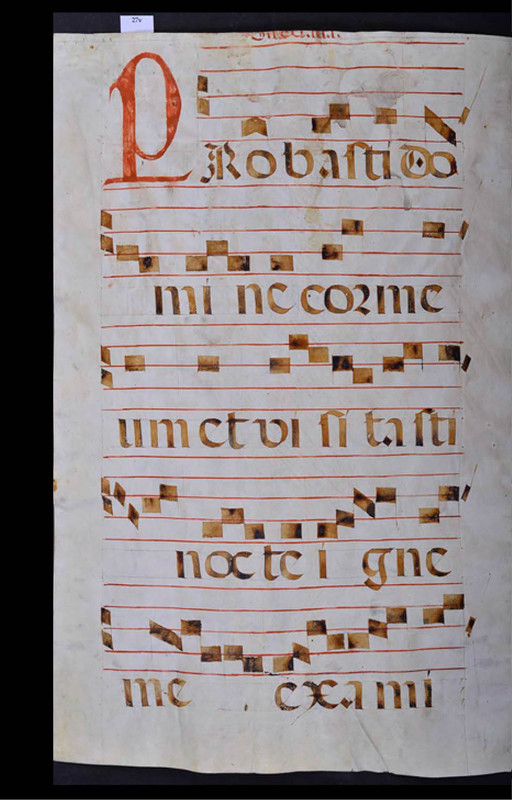 27v
PRobasti Do
mi ne cor me
um et vi si ta sti
nocte i gne
me exami